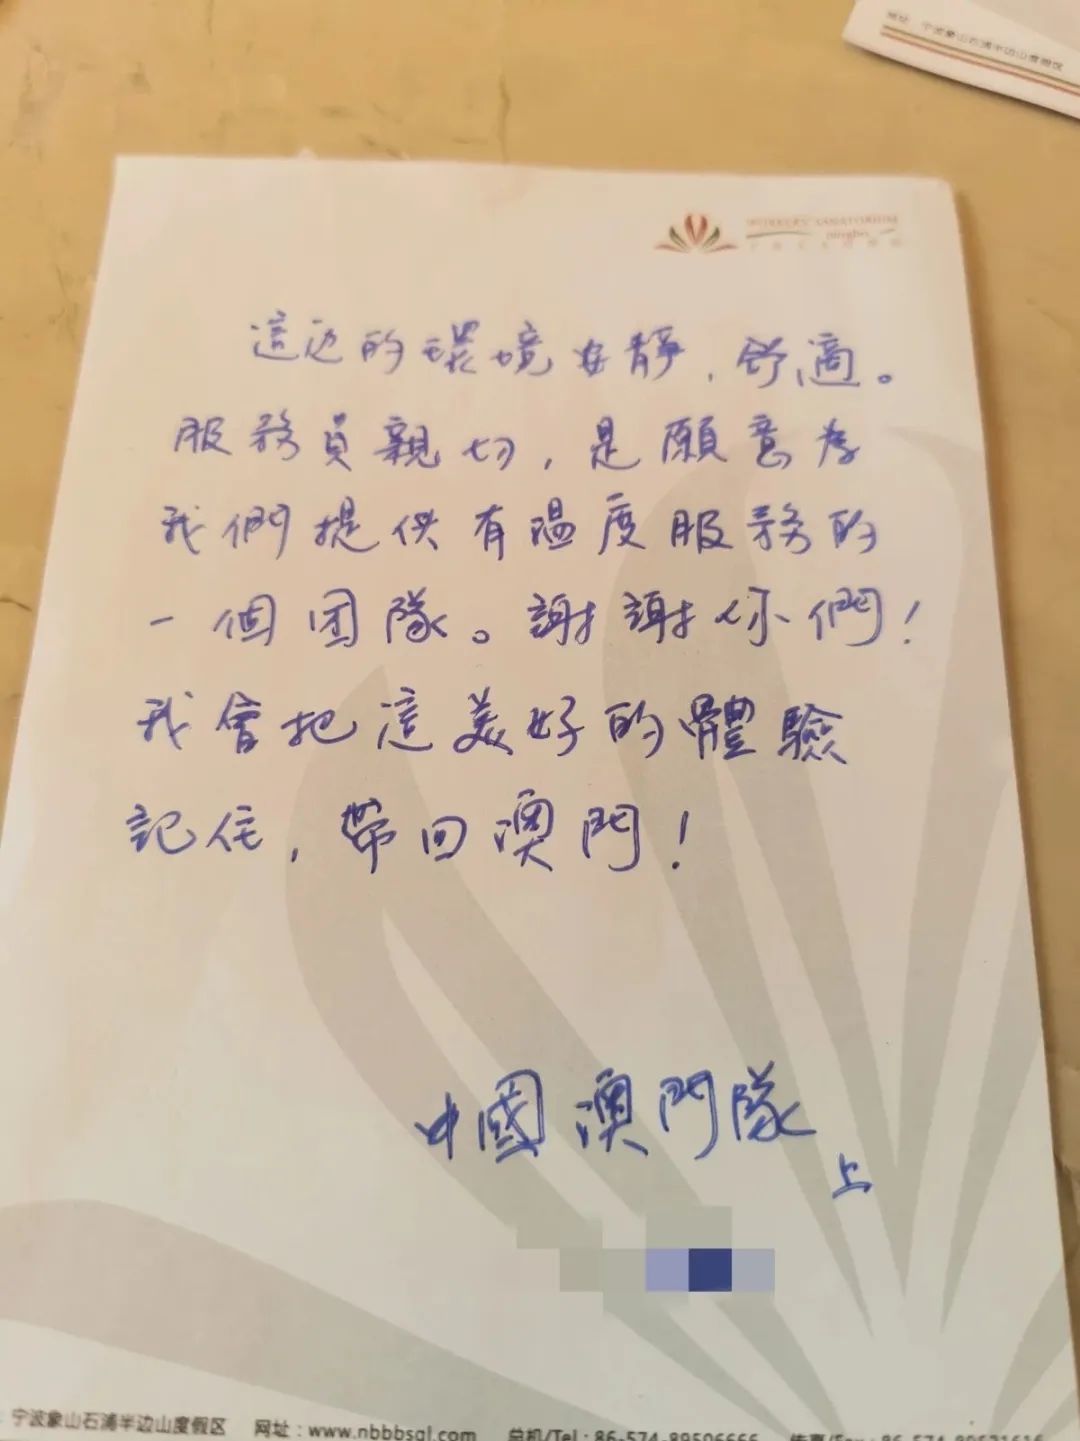 地址：宁波象山石浦半边山度假区
WORKERS' SANATORIUM
ningbo
這边的環境安靜，舒適。
服務員親切，是願意為
我們提供有温度服務的
一個团隊。謝謝你們！
我會把這美好的體驗
記住，帶回澳門！
中國澳門隊
上
宁波象山石浦半边山度假区 网址：www.nbbbsgl.com 总机/Tel：86-574-89506666 传真/Fax：86-574-89521616